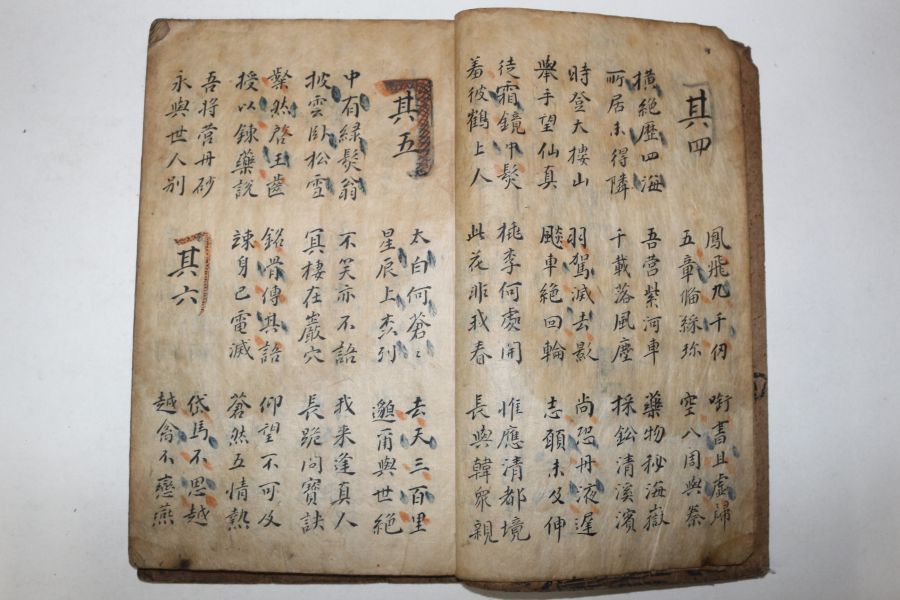 其四
鳳飛九千仞
五章俻綵珎
啣書且虛歸
空八周與秦
橫絕歷四海
所居未得隣
吾營紫河車
千載落風塵
藥物秘海嶽
採鈆清溪濱
時登大樓山
舉手望仙真
羽駕滅去影
飈車絕回輪
尚恐丹液遲
志願未及伸
徒霜鏡中髮
羞彼鶴上人
桃李何處開
此花非我春
惟應清都境
長與韓眾親
其五
太白何蒼〻
星辰上森列
去天三百里
邈爾與世絕
中有綠髮翁
披雲臥松雪
不笑亦不語
冥棲在巖穴
我来逢真人
長跪問寶訣
粲然啓玉齒
授以鍊藥說
銘骨傳其語
竦身已電滅
仰望不可及
蒼然五情熱
吾將營丹砂
永與世人別
其六
岱馬不思越
越禽不戀燕